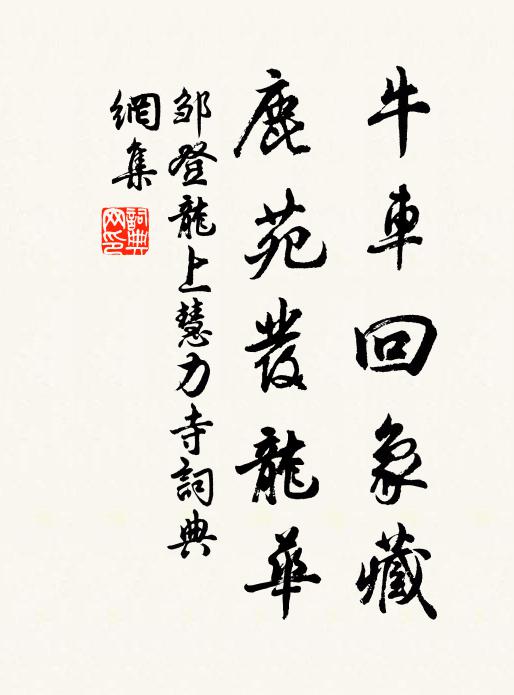 牛車回象藏
鹿苑發龍華
邹登龍上慧力寺詞典
網集
詞典
网印